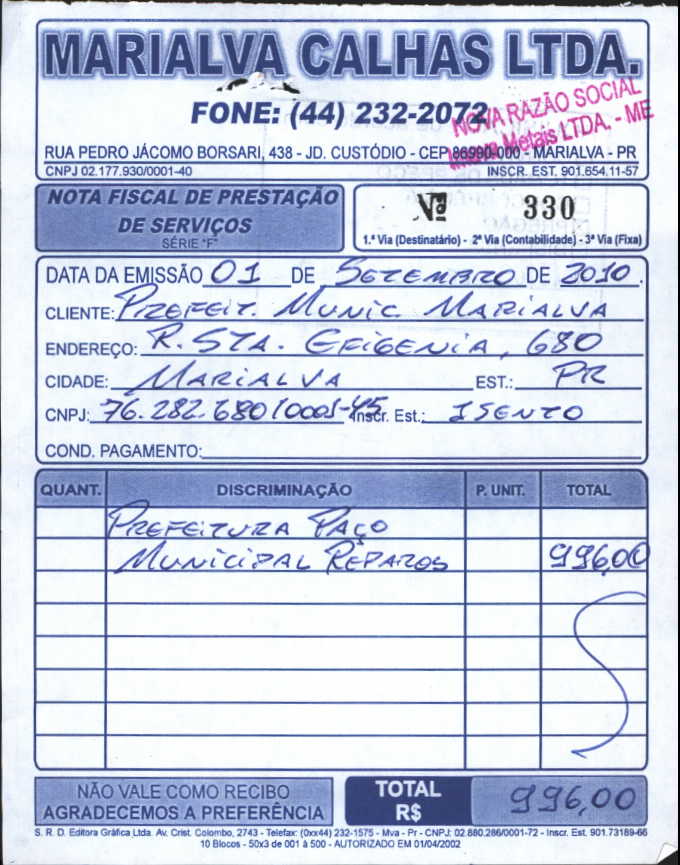 MARIALVA CALHAS LTDA.
FONE: (44) 232-2072
NOVA RAZÃO SOCIAL
Metais LTDA. - ME
RUA PEDRO JÁCOMO BORSARI, 438 - JD. CUSTÓDIO - CEP 86990-000 - MARIALVA - PR
CNPJ 02.177.930/0001-40 INSCR. EST. 901.654.11-57
NOTA FISCAL DE PRESTAÇÃO
DE SERVIÇOS
SÉRIE "F"
Nº 330
1.ª Via (Destinatário) - 2ª Via (Contabilidade) - 3ª Via (Fixa)
DATA DA EMISSÃO 01 DE SETEMBRO DE 2010.
CLIENTE: PREFEIT. MUNIC. MARIALVA
ENDEREÇO: R. STA. EFIGENIA, 680
CIDADE: MARIALVA EST.: PR
CNPJ: 76.282.680/0001-45 Inscr. Est.: ISENTO
COND. PAGAMENTO:
QUANT. DISCRIMINAÇÃO P. UNIT. TOTAL
PREFEITURA PAÇO
MUNICIPAL REPAROS 996,00
NÃO VALE COMO RECIBO
AGRADECEMOS A PREFERÊNCIA
TOTAL
R$ 996,00
S. R. D. Editora Gráfica Ltda. Av. Crist. Colombo, 2743 - Telefax: (0xx44) 232-1575 - Mva - Pr - CNPJ: 02.880.286/0001-72 - Inscr. Est. 901.73189-66
10 Blocos - 50x3 de 001 à 500 - AUTORIZADO EM 01/04/2002